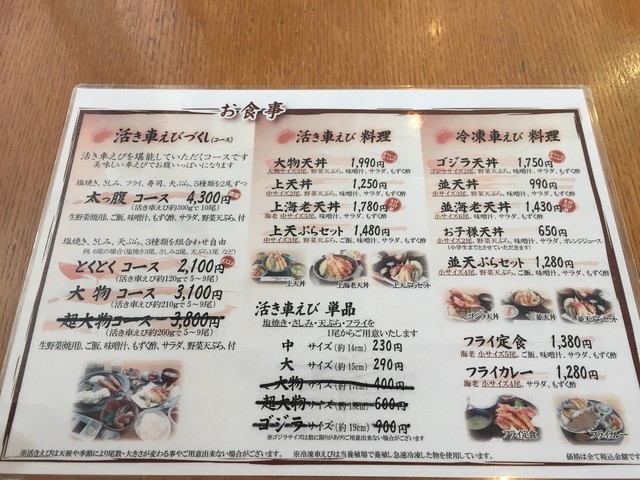 お食事
活き車えびづくし(コース)
活き車えびを堪能していただくコースです
美味しい車えびでお腹いっぱいになります
塩焼き、さしみ、フライ、寿司、天ぷら、5種類を2尾ずつ
太っ腹 コース 4,300円
(活き車えび約300gで10尾)
生野菜(焼用)、ご飯、味噌汁、もずく酢、サラダ、野菜天ぷら、付
塩焼き、さしみ、天ぷら、3種類を組合わせ自由
例、6尾の場合(塩焼き3尾、さしみ2尾、天ぷら1尾 など)
とくとく コース 2,100円
(活き車えび約120gで5～9尾)
大 物 コース 3,100円
(活き車えび約210gで5～9尾)
超大物コース 3,800円
(活き車えび約260gで5～9尾)
生野菜(焼用)、ご飯、味噌汁、もずく酢、サラダ、野菜天ぷら、付
活き車えび 料理
大物天丼 1,990円
大物サイズ2尾、野菜天ぷら、味噌汁、サラダ、もずく酢
上天丼 1,250円
中サイズ2尾、野菜天ぷら、味噌汁、サラダ、もずく酢
上海老天丼 1,780円
海老 中サイズ5尾、味噌汁、サラダ、もずく酢
上天ぷらセット 1,480円
中サイズ3尾、野菜天ぷら、ご飯、味噌汁、サラダ、もずく酢
上天丼
上海老天丼
上天ぷらセット
活き車えび 単品
塩焼き・さしみ・天ぷら・フライを
1尾からご用意いたします
中 サイズ(約14cm) 230円
大 サイズ(約15cm) 290円
大物 サイズ(約17cm) 400円
超大物 サイズ(約18cm) 600円
ゴジラ サイズ(約19cm) 900円
※ゴジラサイズは数に限りがありご用意出来ない場合がございます
冷凍車えび 料理
ゴジラ天丼 1,750円
ゴジラサイズ2尾、野菜天ぷら、味噌汁、サラダ、もずく酢
並天丼 990円
小サイズ2尾、野菜天ぷら、味噌汁、サラダ、もずく酢
並海老天丼 1,430円
海老 小サイズ5尾、味噌汁、サラダ、もずく酢
お子様天丼 650円
小サイズ2尾、野菜天ぷら、味噌汁、サラダ、オレンジジュース
(小学生までとさせていただきます)
並天ぷらセット 1,280円
小サイズ4尾、野菜天ぷら、ご飯、味噌汁、サラダ、もずく酢
ゴジラ天丼
並天丼
並天ぷらセット
フライ定食 1,380円
海老 小サイズ5尾、ご飯、味噌汁、サラダ、もずく酢
フライカレー 1,280円
海老 小サイズ4尾、サラダ、もずく酢
フライ定食
フライカレー
※活き車えびは天候や季節により尾数・大きさが変わる事やご用意出来ない場合がございます。
※冷凍車えびは当養殖場で養殖し急速冷凍した物を使用しています。
価格は全て税込金額です